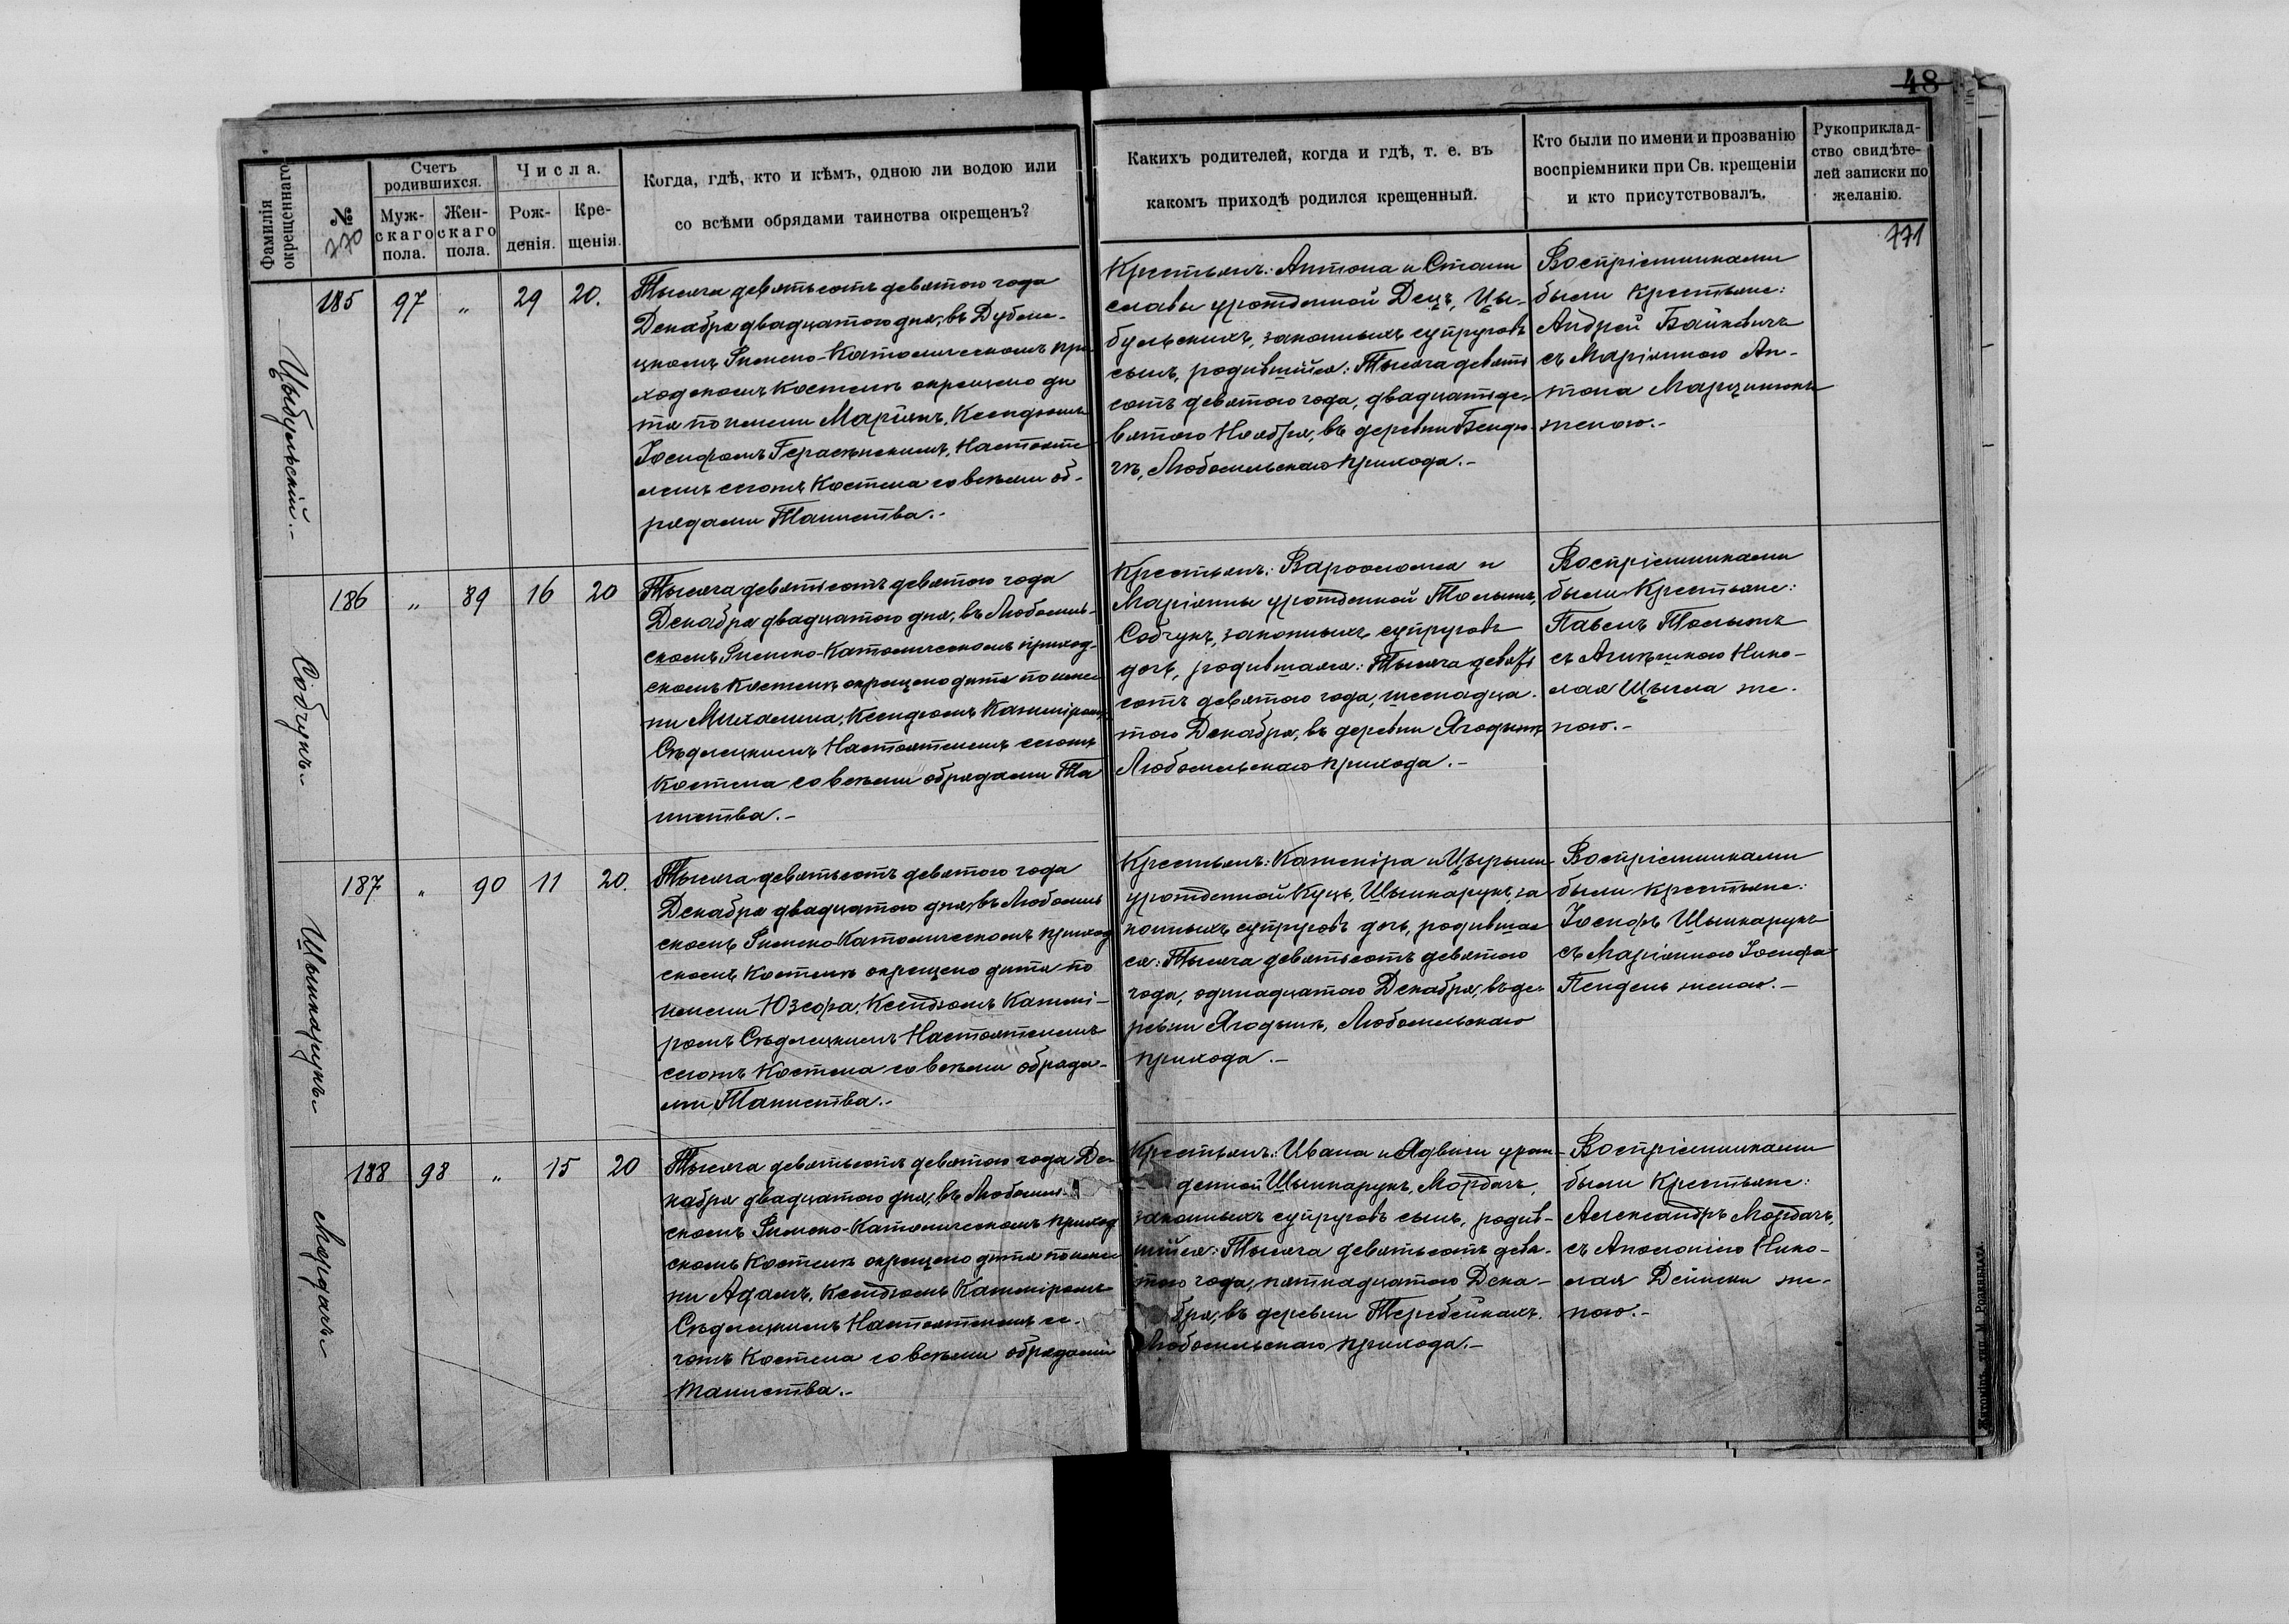 48
Фамилія окрещеннаго
№
770
Счетъ родившихся.
Муж-
скаго
пола.
Жен-
скаго
пола.
Числа.
Рож-
денія.
Кре-
щенія.
Когда, гдѣ, кто и кѣмъ, одною ли водою или
со всѣми обрядами таинства окрещенъ?
Какихъ родителей, когда и гдѣ, т. е. въ
какомъ приходѣ родился крещенный.
Кто были по имени и прозванію
воспріемники при Св. крещеніи
и кто присутствовалъ.
Рукоприклад-
ство свидѣте-
лей записки по
желанію.
771
Цыбульскій.-
185 97 " 29 20.
Тысяча девятьсотъ девятого года
Декабря двадцатого дня, въ Дубене-
цкомъ Римско-Католическомъ при
ходскомъ Костелѣ окрещено ди
тя по имени Маріянъ, Ксендзомъ
Іосифомъ Настояте
лемъ сегожъ Костела со всѣми об-
рядами Таинства.-
Крестьянъ: Антона и Стани
славы урожденной Децъ, Цы-
бульскихъ, законныхъ супруговъ
сынъ, родившійся: Тысяча девять
сотъ девятого года, двадцать де-
вятого Ноября, въ деревни Бендю-
гѣ, Любомльскаго прихода.-
Воспріемниками
были Крестьяне:
Андрей Байкевичъ
съ Маріянною Ан-
тона Марцинюкъ
женою.-
Собчукъ.
186 " 89 16 20
Тысяча девятьсотъ девятого года
Декабря двадцатого дня, въ Любомль-
скомъ Римско-Католическомъ приход-
скомъ Костелѣ окрещено дитя по име
ни Михалина, Ксендзомъ Казиміромъ
Сѣдлецкимъ Настоятелемъ сегожъ
Костела со всѣми обрядами Та
инства.-
Крестьянъ: Варѳоломея и
Маріянны урожденной Толынъ,
Собчукъ, законныхъ супруговъ
дочь, родившаяся: Тысяча девять
сотъ девятого года, шестнадца-
того Декабря, въ деревни Ягодынѣ
Любомльскаго прихода.-
Воспріемниками
были Крестьяне:
Павелъ Толынъ
съ Агнѣшкою Нико-
лая Щыгла же-
ною.-
Шынкарукъ
187 " 90 11 20.
Тысяча девятьсотъ девятого года
Декабря двадцатого дня, въ Любомль
скомъ Римско-Католическомъ приход
скомъ Костелѣ окрещено дитя по
имени Юзефа, Ксендзомъ Казимі-
ромъ Сѣдлецкимъ Настоятелемъ
сегожъ Костела со всѣми обряда-
ми Таинства.-
Крестьянъ: Казиміра и Цырыли
урожденной Куцъ, Шынкарукъ, за
конныхъ супруговъ дочь, родившая
ся: Тысяча девятьсотъ девятого
года, одинадцатого Декабря, въ де-
ревни Ягодынѣ, Любомльскаго
прихода.-
Воспріемниками
были крестьяне:
Іосифъ Шынкарукъ
съ Маріянною Іосифа
Пендень женою.-
Мордачъ
188 98 " 15 20
Тысяча девятьсотъ девятого года Де-
кабря двадцатого дня, въ Любомль-
скомъ Римско-Католическомъ приход
скомъ Костелѣ окрещено дитя по име
ни Адамъ, Ксендзомъ Казиміромъ
Сѣдлецкимъ Настоятелемъ се-
гожъ Костела со всѣми обрядами
Таинства.-
Крестьянъ: Ивана и Ядвиги урож-
денной Шынкарукъ, Мордачъ,
законныхъ супруговъ сынъ, родив-
шійся: Тысяча девятьсотъ девя-
того года, пятнадцатого Дека-
бря, въ деревни Теребейкахъ,
Любомльскаго прихода.-
Воспріемниками
были Крестьяне:
Александръ Мордачъ,
съ Аполоніею Нико-
лая Дейнеки же-
ною.-
Житомиръ, тип. М. Розенблата.